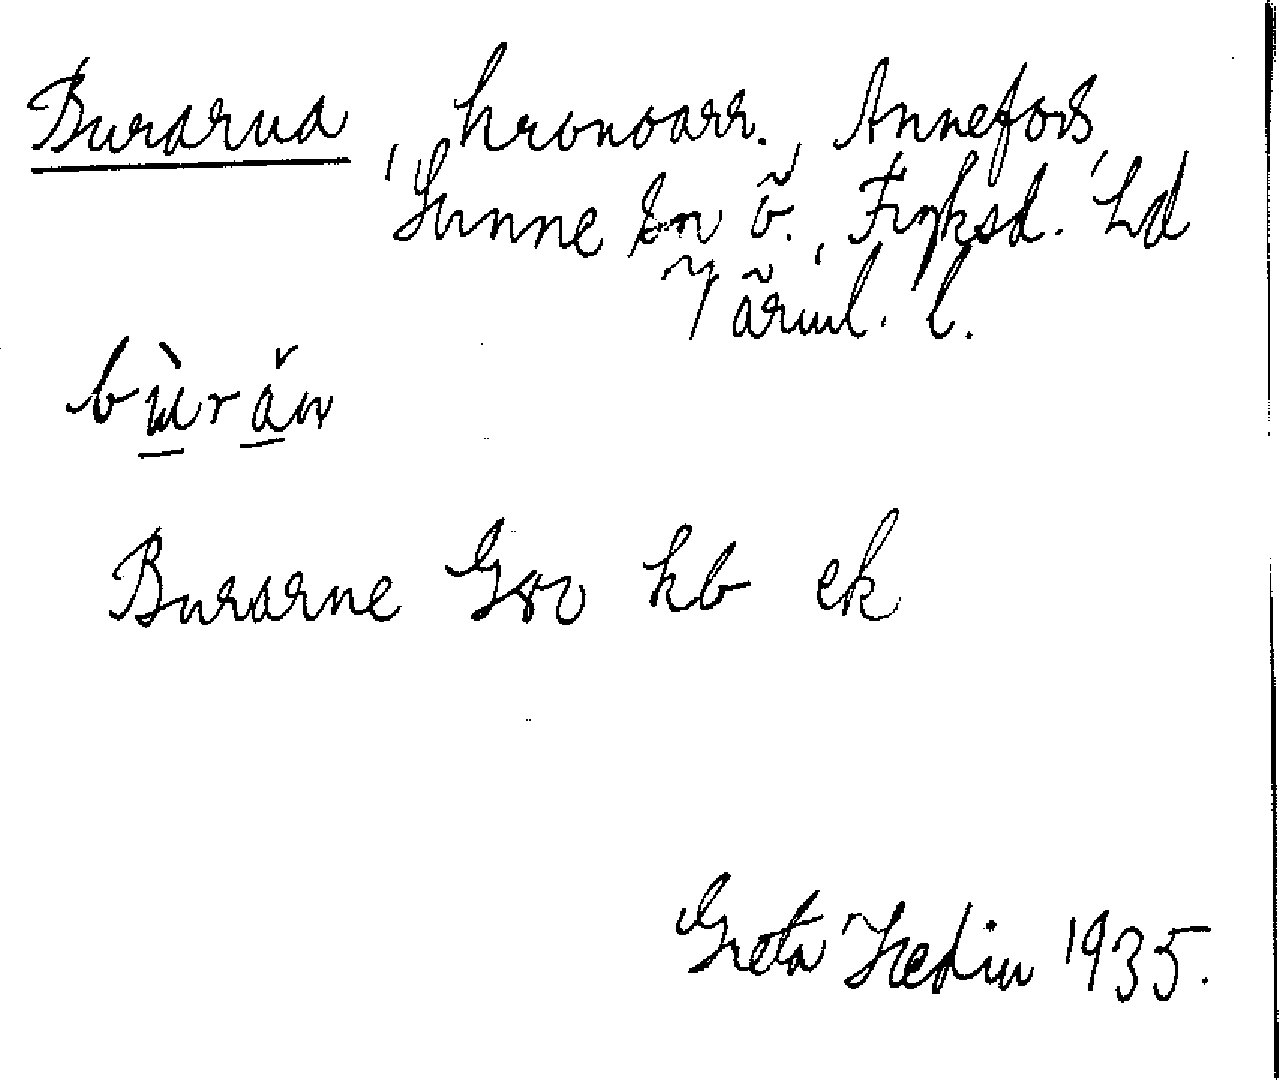 Burarna, kronoarr., Annefors,
Sunne sn Ö., Fryksd. hd
Värml. l.
bùrǎn
Burarne Gso kb ek
Greta Hedin 1935.